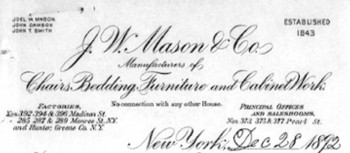 JOEL W. MASON
JOHN DAWSON
JOHN T. SMITH
ESTABLISHED
1843
J. W. Mason & Co.
Manufacturers of
Chairs, Bedding, Furniture and Cabinet Work.
No connection with any other House.
FACTORIES,
392-394 & 396 Madison St.
285, 287 & 289 Monroe St. N.Y.
and Hunter, Greene Co. N.Y.
PRINCIPAL OFFICES
AND SALESROOMS,
Nos 373, 375 & 377 Pearl St.
New York, Dec 28 1892